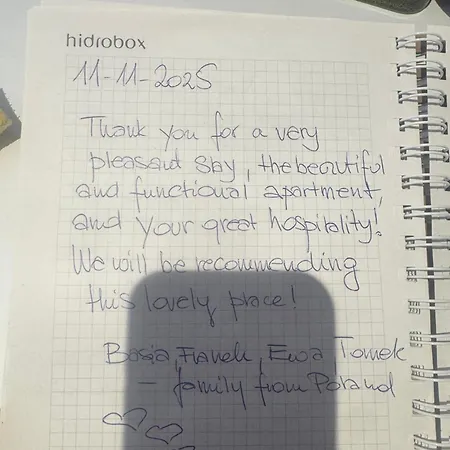 hidrobox
11-11-2025
Thank you for a very
pleasant stay, the beautiful
and functional apartment,
and your great hospitality!
We will be recommending
this lovely place!
Basia, Franek, Ewa Tomek
– family from Poland